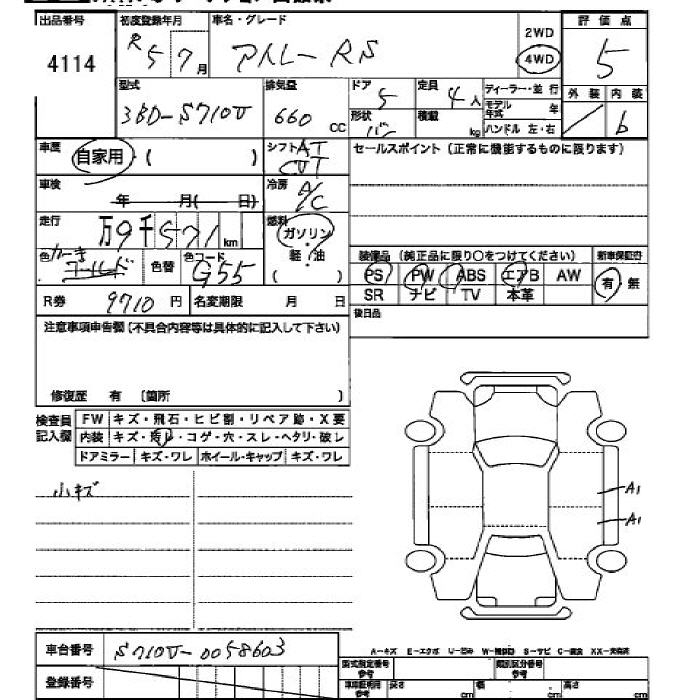 出品番号 初度登録年月 車名・グレード 評価点
4114 R5 7月 アトレー RS 2WD 4WD 5
型式 排気量 ドア 定員 ディーラー・並行 外装 内装
3BD-S710V 660 CC 5 4人 モデル年式 年 b
形状 バン 積載 kg ハンドル 左・右
車歴 自家用・( ) シフト AT CVT セールスポイント(正常に機能するものに限ります)
車検 年 月( 日) 冷房 A/C
走行 万9千571km 燃料 ガソリン・軽油 ( )
色 カーキ ゴールド 色替 色コード G55 装備品 (純正品に限り○をつけてください) 新車保証書
PS PW ABS エアB AW 有・無
R券 9710円 名変期限 月 日 SR ナビ TV 本革
後日品
注意事項申告欄(不具合内容等は具体的に記入して下さい)
修復歴 有 〔箇所 〕
検査員記入欄 FW キズ・飛石・ヒビ割・リペア跡・X要
内装 キズ・汚れ・コゲ・穴・スレ・ヘタリ・破レ
ドアミラー キズ・ワレ ホイール・キャップ キズ・ワレ
小キズ
A1
A1
車台番号 S710V-0058603
A-キズ E-エクボ U-凹み S-サビ C-腐食
登録番号 型式指定番号 参考 類別区分番号 参考
長さ cm 幅 cm 高さ cm